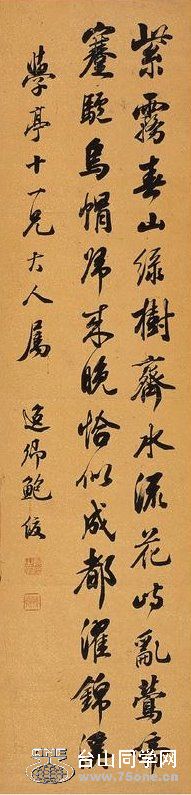 紫霧春山綠樹齊水流花嶼亂鶯啼
蹇驢烏帽歸來晚恰似成都濯錦溪
學亭十一兄大人屬 逸卿鮑俊
台山同学网
www.75one.cn